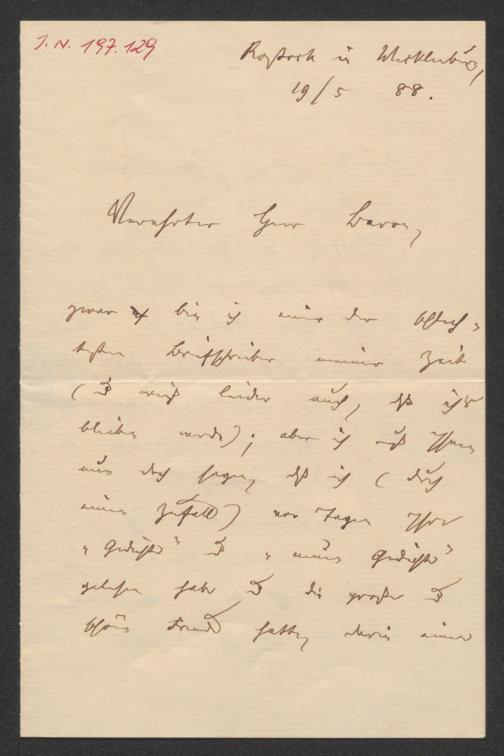 J. N. 197.129
Rostock in Mecklenburg,
19/5 88.
Verehrter Herr Baron,
zwar bin ich einer der schlech-
testen Briefschreiber meiner Zeit
( u weiß leider auch, daß ich's
bleiben werde); aber ich muß Ihnen
nun doch sagen, daß ich (durch
einen Zufall) vor Tagen Ihre
„Gedichte" u „neue Gedichte"
gelesen habe u die große u
schöne Freude hatte, darin einen